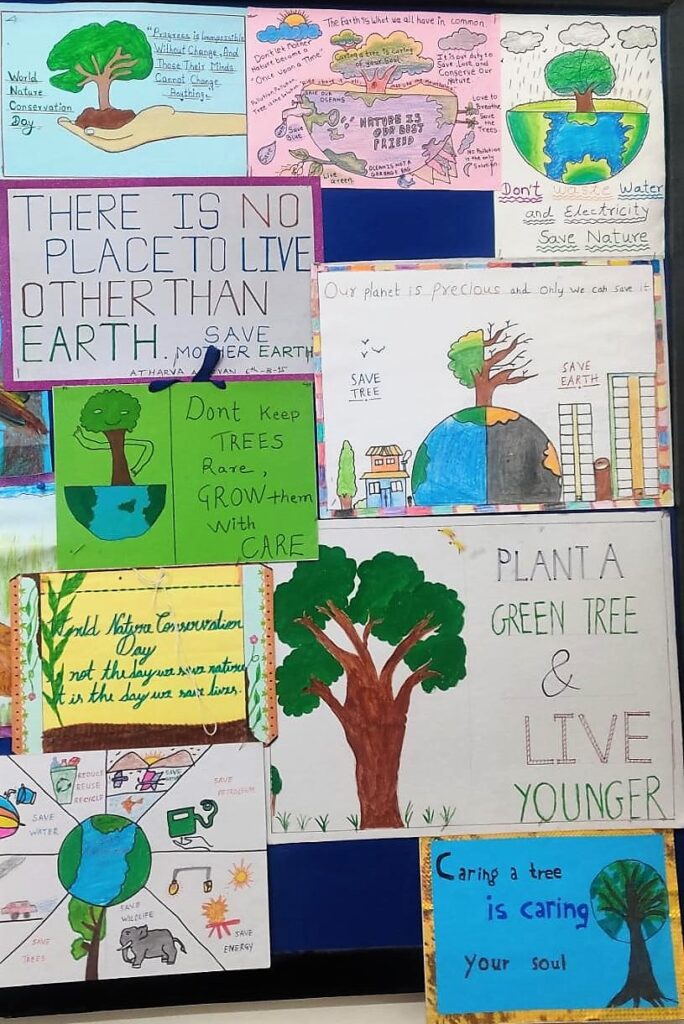 World
Nature
Conservation
Day
"Progress is Impossible
Without Change, And
Those Their Minds
Cannot Change
Anything.
The Earth is What we all have in common.
Don't let Mother
Nature become a
"Once Upon a Time"
Caring a tree is caring
of your Soul
It is our duty to
Save Love and
Conserve Our
Nature.
SAVE OUR
OCEANS
NATURE IS
OUR BEST
FRIEND
Love to
Breathe
Save
the
Trees
No Pollution
is the only
Solution
Live
Green
OCEAN IS NOT A
GARBAGE BAG
Don't waste Water
and Electricity
Save Nature
THERE IS NO
PLACE TO LIVE
OTHER THAN
EARTH. SAVE
MOTHER EARTH
Our planet is precious and only we can save it
SAVE
TREE
SAVE
EARTH
Dont Keep
TREES
Rare,
GROW them
With
CARE
World Nature Conservation
Day
not the day we save nature
It is the day we save lives.
PLANT A
GREEN TREE
&
LIVE
YOUNGER
REDUCE
REUSE
RECYCLE
SAVE
PETROLEUM
SAVE
WATER
SAVE
WILDLIFE
SAVE
TREES
SAVE
ENERGY
Caring a tree
is caring
your soul